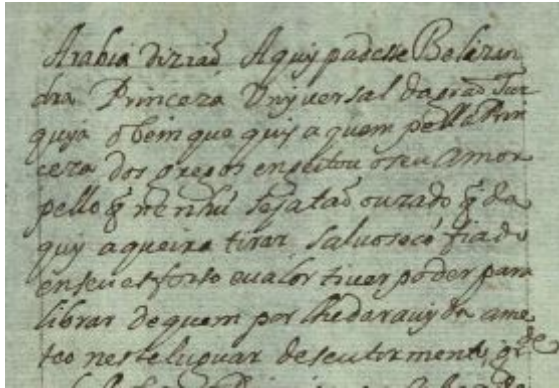 Arabia diziaõ Aquy padesse Belerin
dra Princeza Vnyversal da graõ Tur
quya o bem que quis a quem pella Prin
ceza dos gregos engeitou o seu amor
pello q̃ nenhũ seja taõ ouzado q̃ da
quy a queira tirar salvo se cõ fiado
en seu esforso e valor tiver poder para
librar de quem por lhe dar a vyda a me
teo neste luguar de seu tormento, gr.de